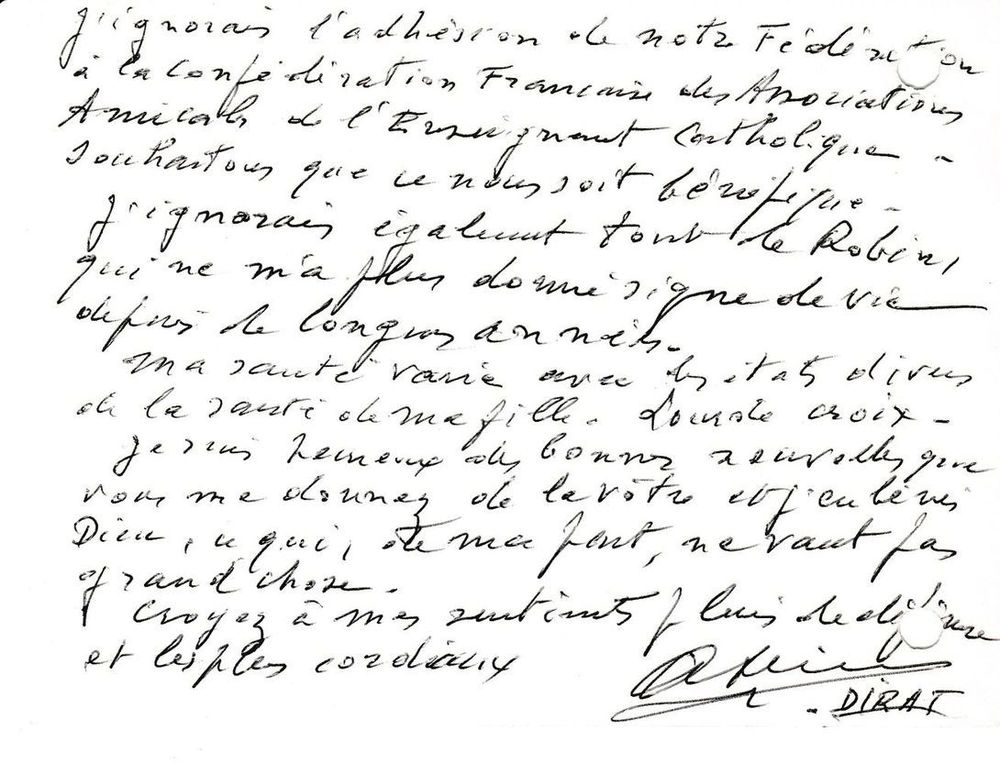 J'ignorais l'adhésion de notre Fédération
à la Confédération Française des Associations
Amicales de l'Enseignement Catholique -
Souhaitons que ce nous soit bénéfique -
J'ignorais également tout de Robin,
qui ne m'a plus donné signe de vie
depuis de longues années.
Ma santé varie avec les états divers
de la santé de ma fille. Lourde croix -
Je suis heureux des bonnes nouvelles que
vous me donnez de la vôtre et j'en bénis
Dieu, ce qui, de ma part, ne vaut pas
grand chose.
Croyez à mes sentiments pleins de
et les plus cordiaux
DIRAT